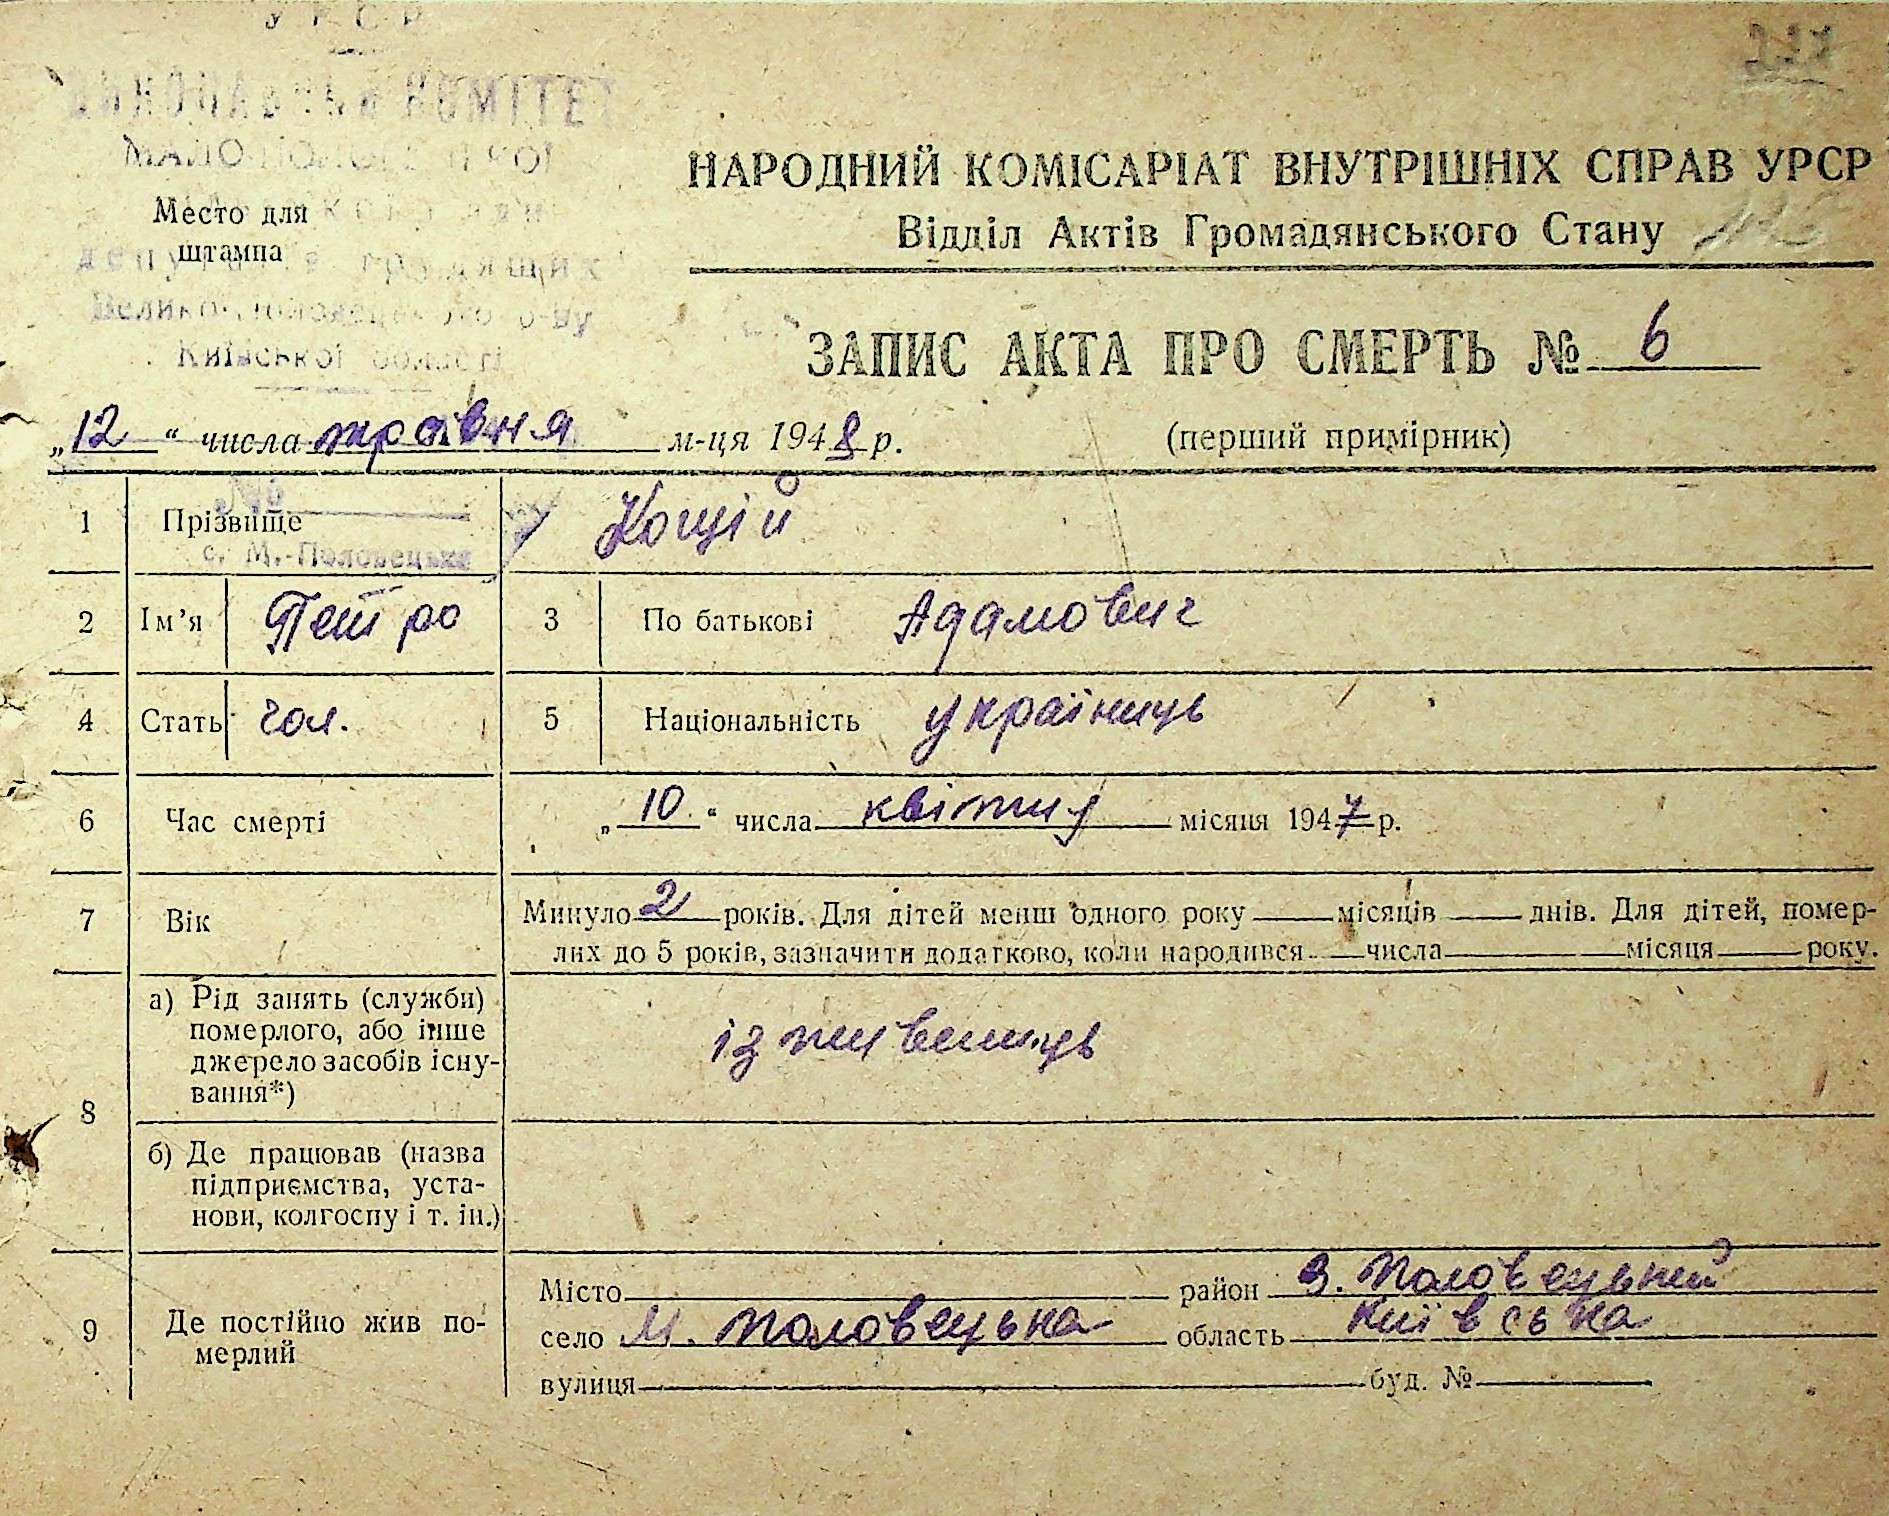 УРСР
ВИКОНАВЧИЙ КОМІТЕТ
МАЛО-ПОЛОВЕЦЬКОЇ
Место для
штампа
депутатів трудящих
Велико-Половецького р-ну
Київської області
НАРОДНИЙ КОМІСАРІАТ ВНУТРІШНІХ СПРАВ УРСР
Відділ Актів Громадянського Стану
ЗАПИС АКТА ПРО СМЕРТЬ № 6
„12“ числа травня м-ця 1948 р.
(перший примірник)
№
с. М.-Половецьке
1 Прізвище Кощій
2 Ім’я Петро 3 По батькові Адамович
4 Стать чол. 5 Національність українець
6 Час смерті „10“ числа квітня місяця 1947 р.
7 Вік Минуло 2 років. Для дітей менш одного року місяців днів. Для дітей, помер-
лих до 5 років, зазначити додатково, коли народився числа місяця року.
8 а) Рід занять (служби)
померлого, або інше
джерело засобів існу-
вання*)
із
б) Де працював (назва
підприємства, уста-
нови, колгоспу і т. ін.)
9 Де постійно жив по-
мерлий
Місто район В. Половецький
село М. Половецька область Київська
вулиця буд. №